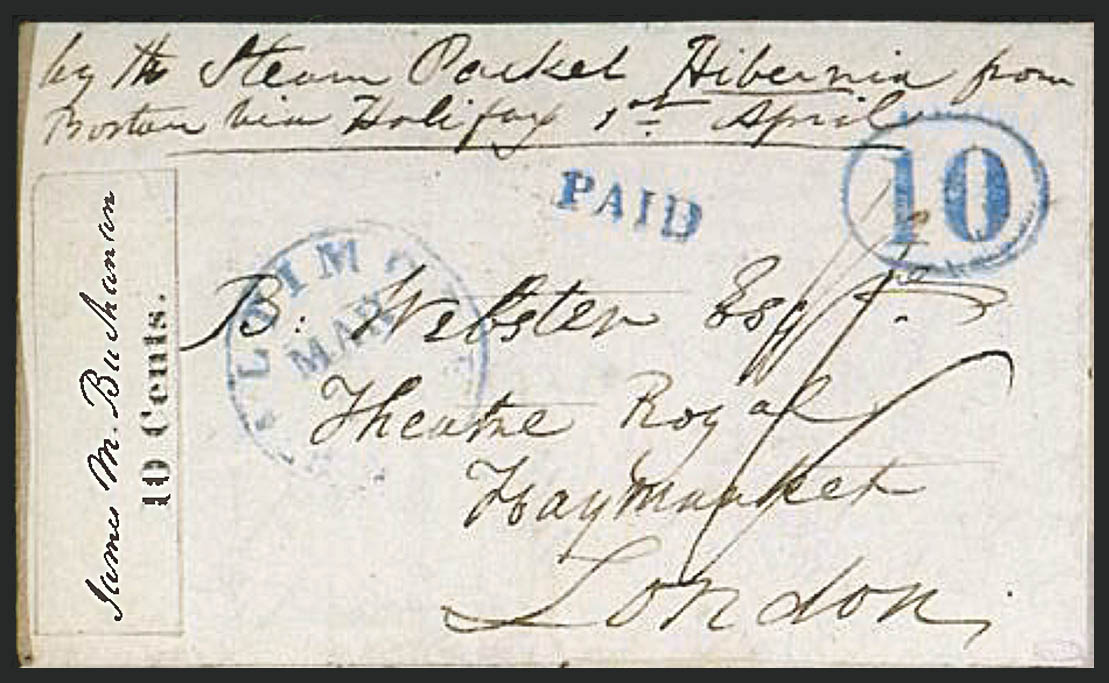 by the Steam Packet Hibernia from
Boston via Halifax 1st April
PAID
10
James M. Buchanan
10 Cents.
MAR
B. Webster Esqr.
Theatre Royal
Haymarket
London.